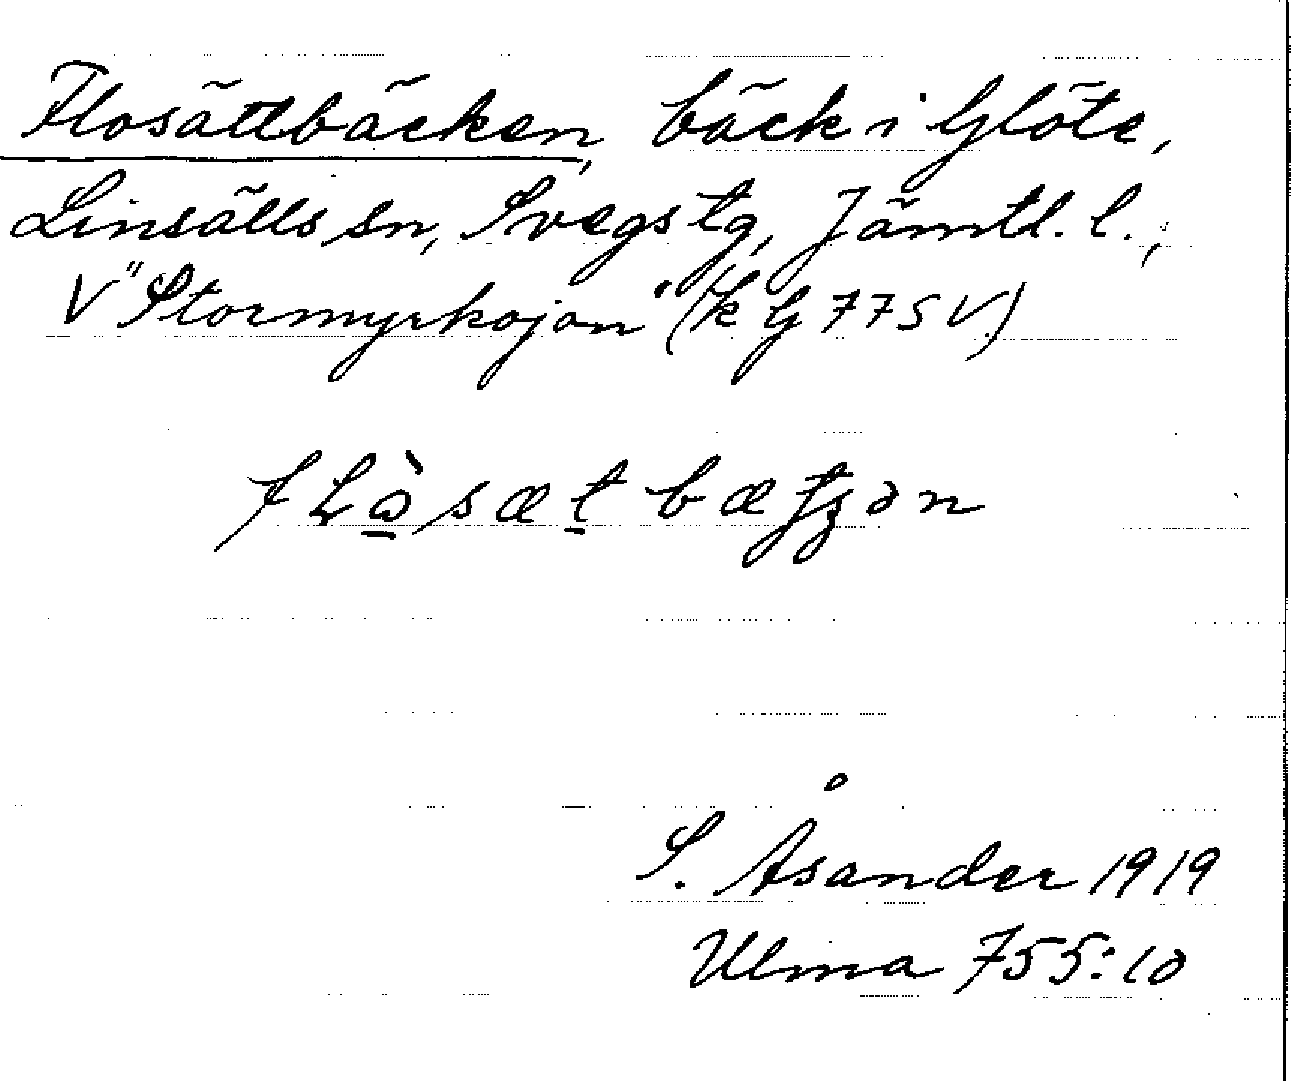 Flosättbäcken, bäck i Glöte,
Linsälls sn, Svegs tg, Jämtl. l.,
V "Stormyrkojan" (k G 77 S V.)
fɫòsætbætʒən
S. Åsander 1919
Ulma 755:10